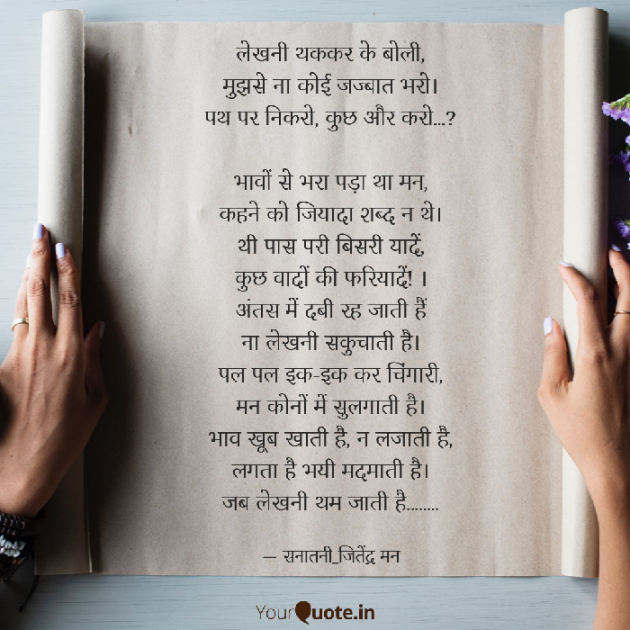 लेखनी थककर के बोली,
मुझसे ना कोई जज्बात भरो।
पथ पर निकरो, कुछ और करो...?
भावों से भरा पड़ा था मन,
कहने को जियादा शब्द न थे।
थी पास परी बिसरी यादें,
कुछ वादों की फरियादें! ।
अंतस में दबी रह जाती हैं
ना लेखनी सकुचाती है।
पल पल इक-इक कर चिंगारी,
मन कोनों में सुलगाती है।
भाव खूब खाती है, न लजाती है,
लगता है भयी मदमाती है।
जब लेखनी थम जाती है........
— सनातनी_जितेंद्र मन
YourQuote.in